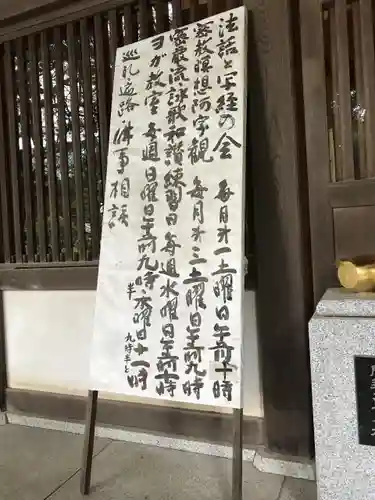 法話と写経の会 毎月第一土曜日午前十時
密教瞑想阿字観 毎月第三土曜日午前九時
密厳流詠歌和讃練習日 毎週水曜日午前十時
ヨガ教室 毎週日曜日午前九時半・火曜日十一時
九時半と
巡礼遍路 仏事相談